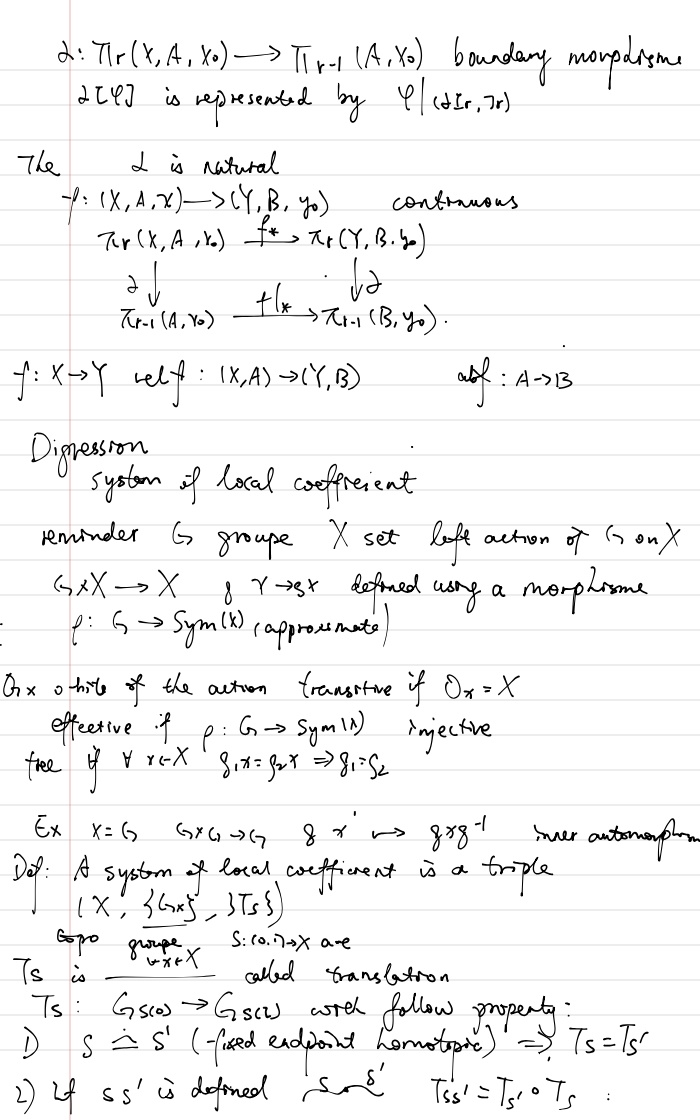 ∂: πr(X, A, x₀) ⟶ πr-1(A, x₀) boundary morphisme
∂[φ] is represented by φ|(∂Ir, Jr)
The ∂ is natural
f: (X, A, x) ⟶ (Y, B, y₀) continuous
πr(X, A, x₀) f* ⟶ πr(Y, B, y₀)
∂ ↓ ↓ ∂
πr-1(A, x₀) f|* ⟶ πr-1(B, y₀).
f: X → Y rel f : (X, A) → (Y, B) abf : A → B
Digression
system of local coeffreient
reminder G groupe X set left action of G on X
G×X ⟶ X g x → gx defined using a morphisme
ρ: G → Sym(X) (approximate)
Ox orbite of the action transitive if Ox = X
effective if ρ: G → Sym(X) injective
free if ∀ x∈X g₁x = g₂x ⟹ g₁=g₂
Ex X=G G×G→G g x' ↦ gxg⁻¹ inner automorphism
Def: A system of local coefficient is a triple
(X, {Gx}, {Ts})
topo groupe ∀x∈X S: (0,1)→X are
Ts is called translation
Ts: Gs(0) → Gs(1) with follow property:
1) S ≃ S' (fixed endpoint homotopic) ⟹ Ts = Ts'
2) If ss' is defined s s' Tss' = Ts' ∘ Ts